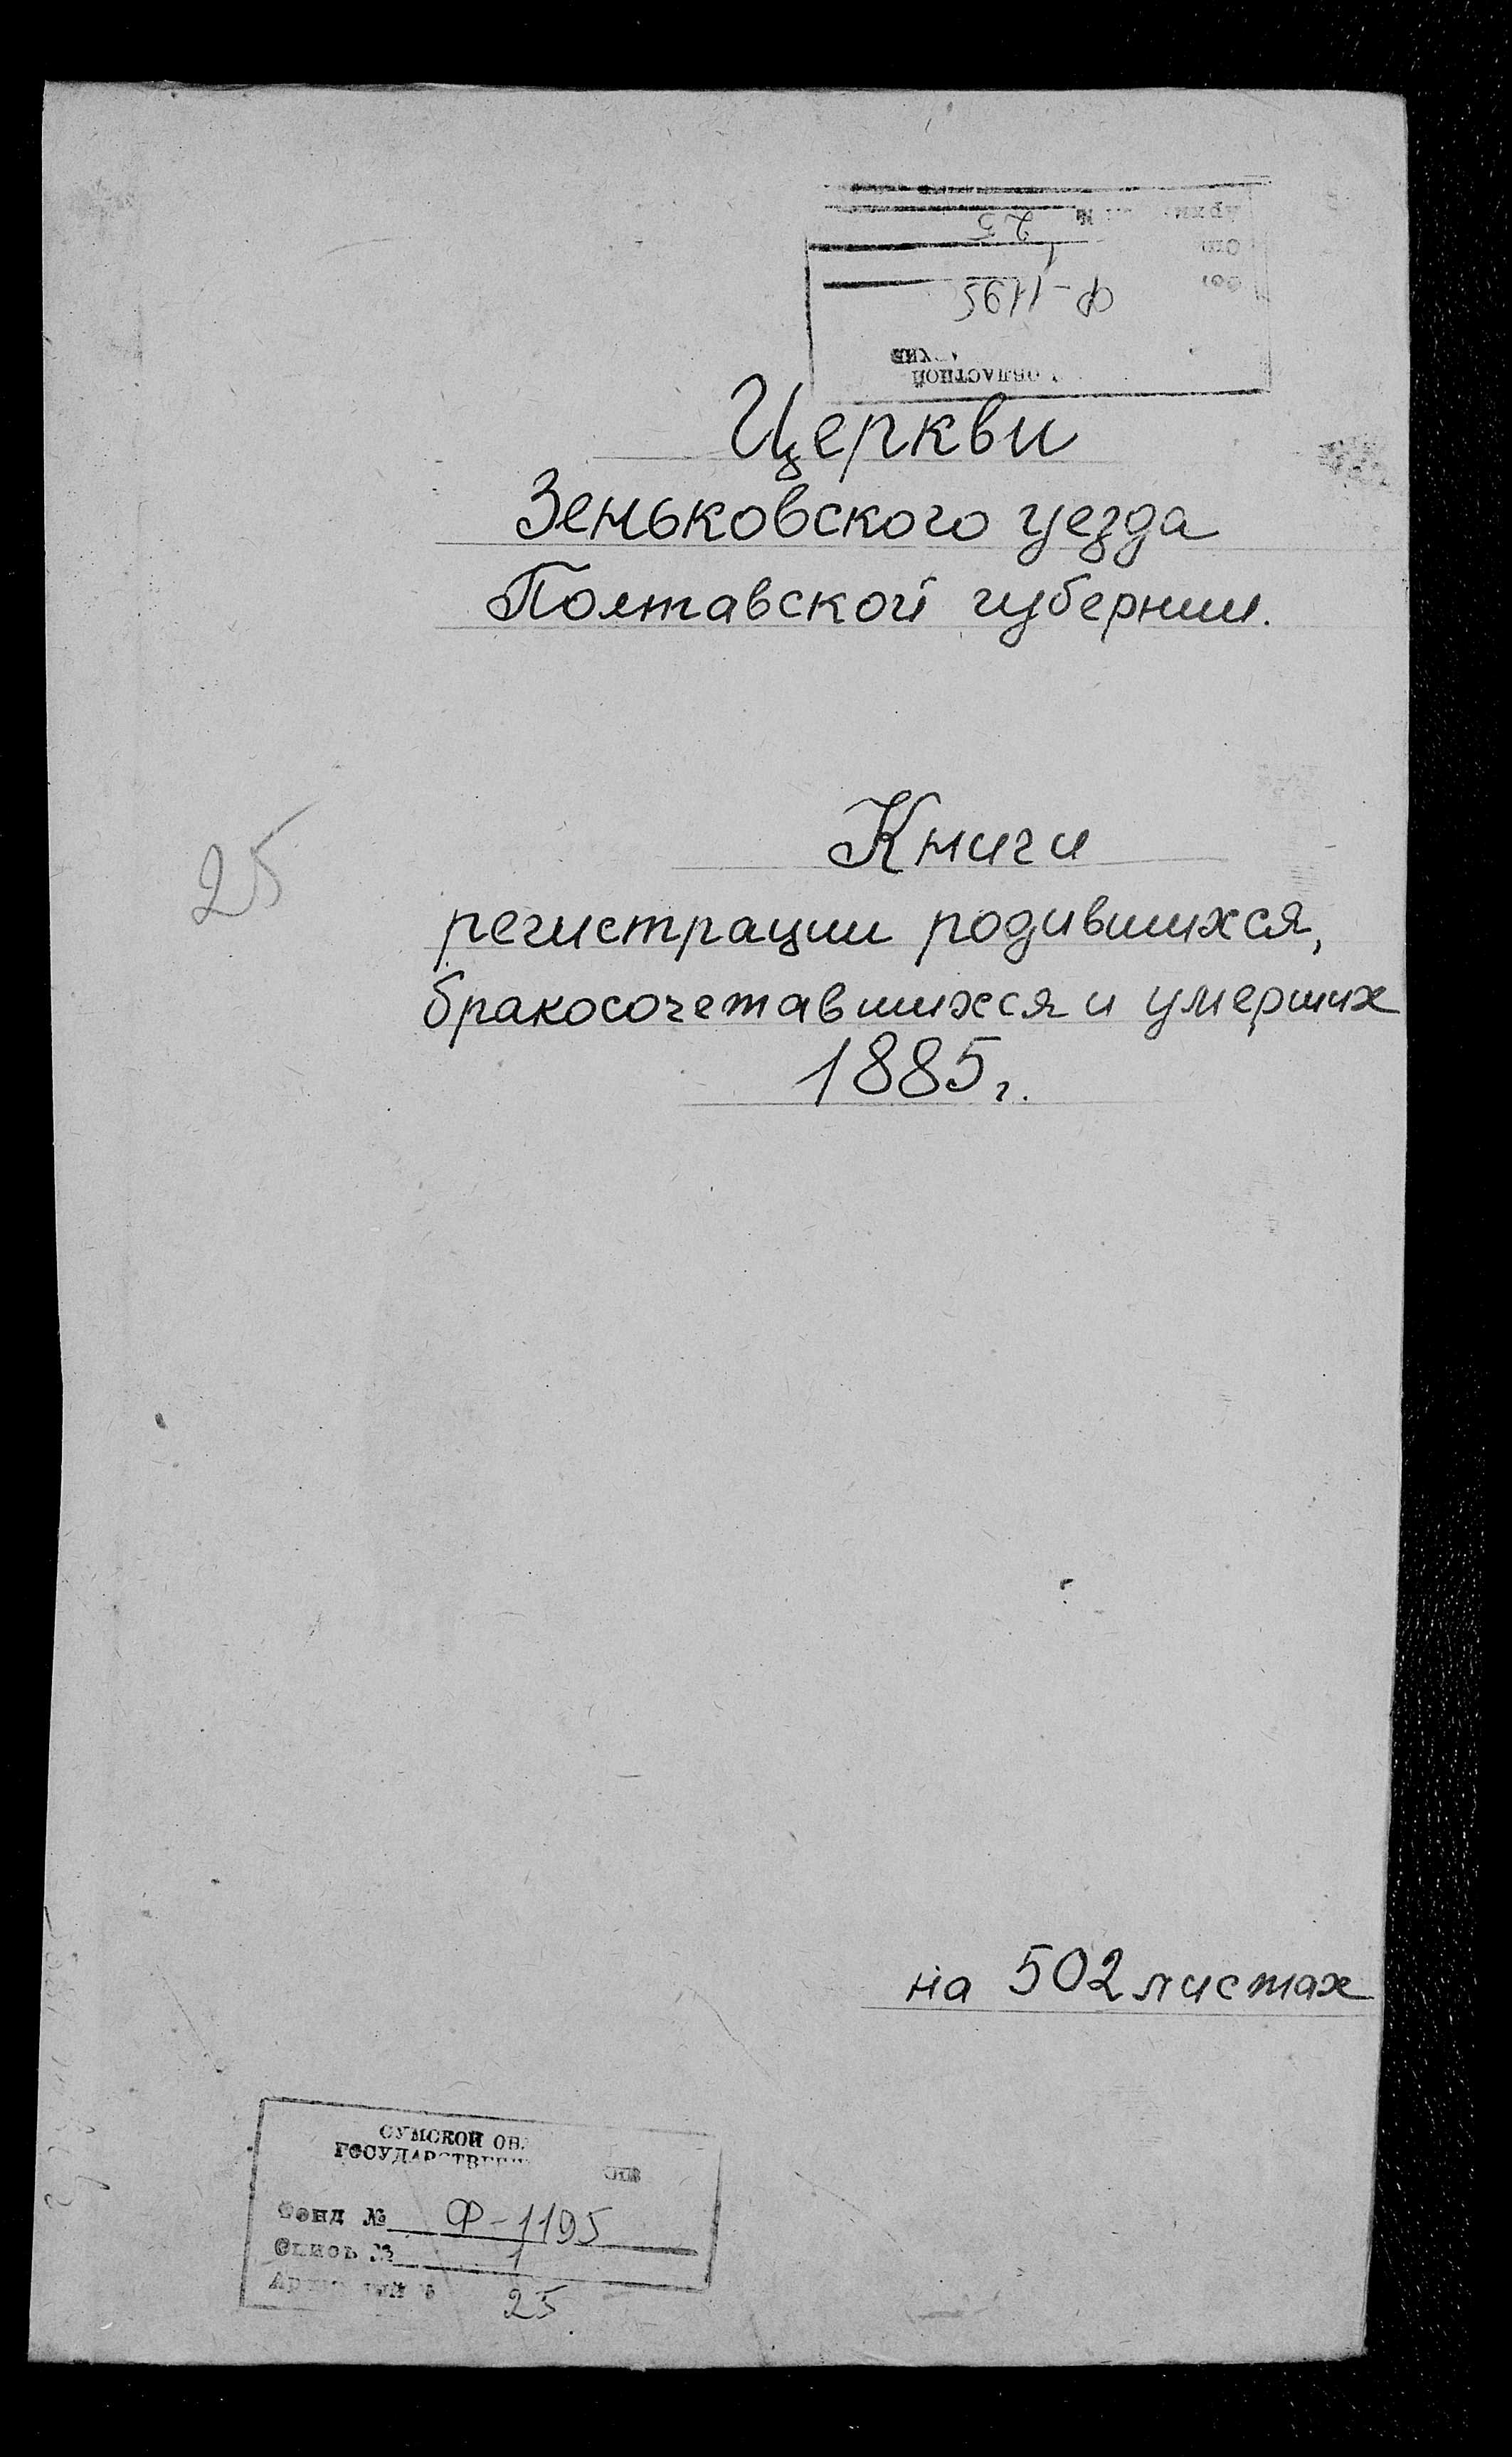 № 25
1
Ф-1195
ОБЛАСТНОЙ
Церкви
Зеньковского уезда
Полтавской губернии.
25
Книги
регистрации родившихся,
бракосочетавшихся и умерших
1885 г.
на 502 листах
СУМСКОЙ ОБ
ГОСУДАРСТВЕН
Фонд № Ф-1195
Опись № 1
25